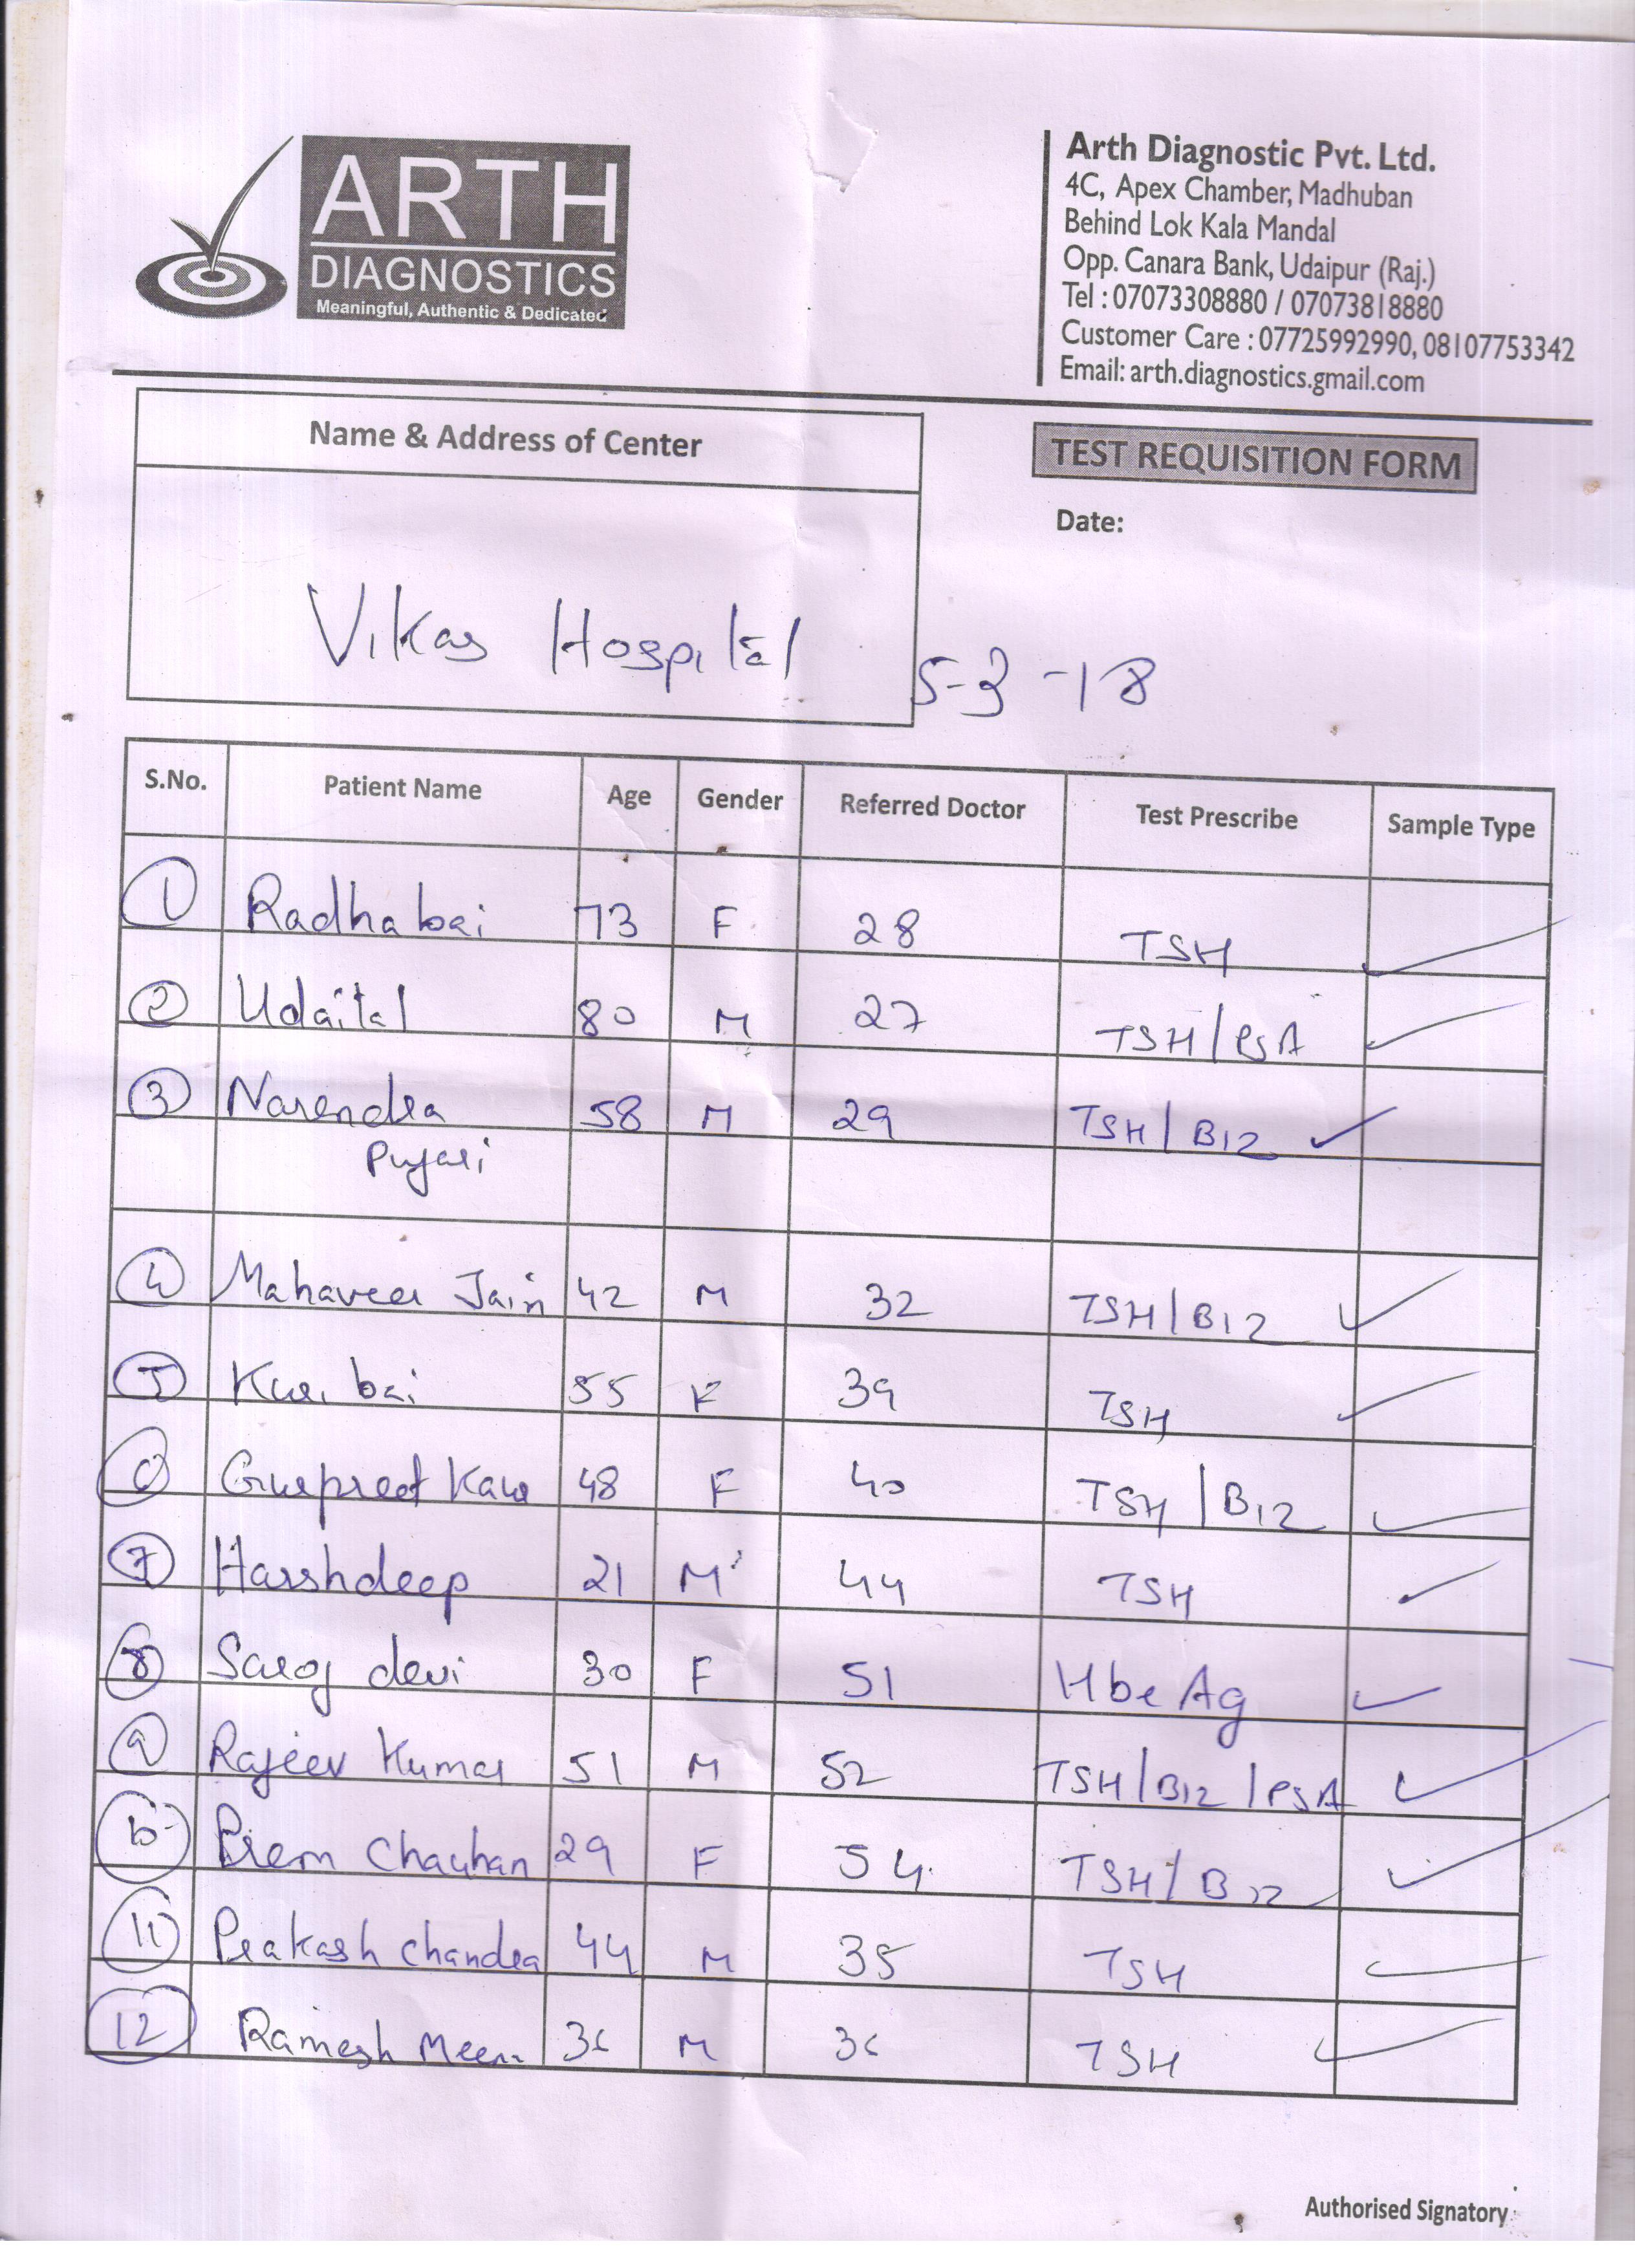 ARTH
DIAGNOSTICS
Meaningful, Authentic & Dedicated
Arth Diagnostic Pvt. Ltd.
4C, Apex Chamber, Madhuban
Behind Lok Kala Mandal
Opp. Canara Bank, Udaipur (Raj.)
Tel : 07073308880 / 07073818880
Customer Care : 07725992990, 08107753342
Email: arth.diagnostics.gmail.com
Name & Address of Center
TEST REQUISITION FORM
Date:
Vikas Hospital
5-3-18
S.No. Patient Name Age Gender Referred Doctor Test Prescribe Sample Type
1 Radha bai 73 F 28 TSH
2 Udailal 80 M 27 TSH/PSA
3 Narendra 58 M 29 TSH/B12
Pujari
4 Mahaveer Jain 42 M 32 TSH/B12
5 bai 55 F 39 TSH
6 Gurpreet Kaur 48 F 40 TSH/B12
7 Harshdeep 21 M 44 TSH
8 Saroj devi 30 F 51 HbeAg
9 Rajeev Kumar 51 M 52 TSH/B12/PSA
10 Prem Chauhan 29 F 54 TSH/B12
11 Prakash Chandra 44 M 35 TSH
12 Ramesh Meena 36 M 36 TSH
Authorised Signatory